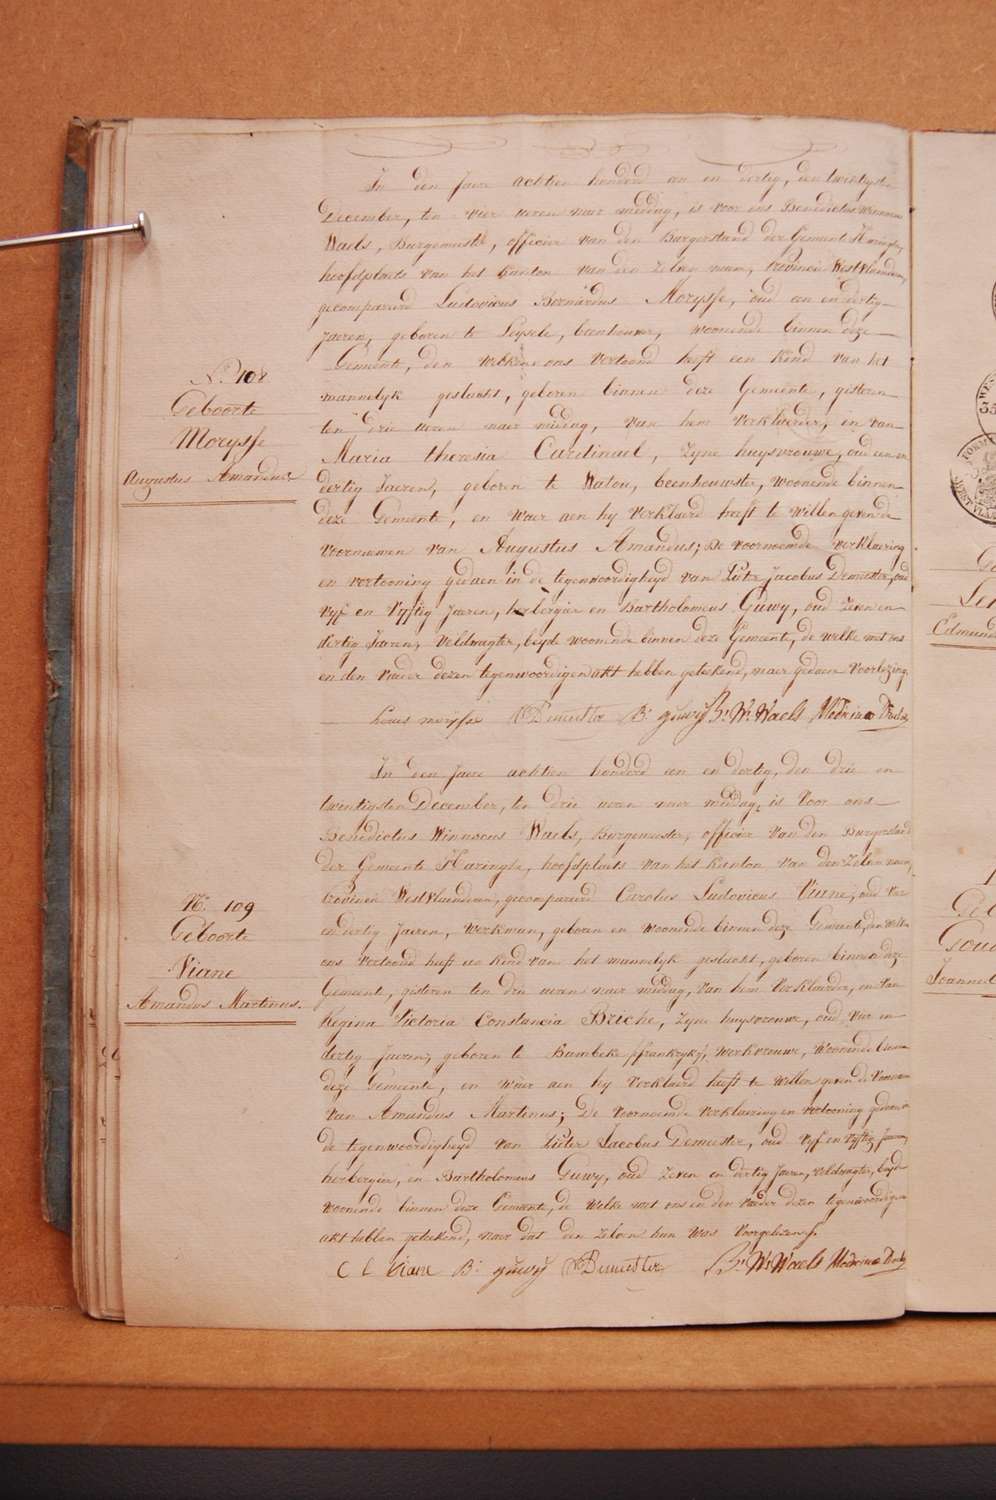 In den Jaere achtien honderd een en dertig, den twintigsten
December, ten vier uren naer middag, is voor ons Benedictus Winnocus
Waels, Burgemeester, officier van den Burgerstand der Gemeente Haringhe,
hoofdplaets van het Kanton van den zelven naem, provincie Westvlaenderen,
gecompareerd Ludovicus Bernardus Morysse, oud een en dertig
Jaeren, geboren te Leysele, beenhouwer, woonende binnen deze
Gemeente, den welken ons vertoond heeft een kind van het
mannelyk geslacht, geboren binnen deze Gemeente, gisteren
ten drie uren naer middag, van hem verklaerder, en van
Maria Theresia Cardinael, zyne huysvrouwe, oud een en
dertig Jaeren, geboren te Watou, beenhouwster, woonende binnen
deze Gemeente, en waer aen hy verklaerd heeft te willen geven de
voornamen van Augustus Amandus; De voornoemde verklaering
en vertooning gedaen in de tegenwoordigheyd van Pieter Jacobus Demeester, oud
vyf en vyftig Jaeren, herbergier en Bartholomeus Guwy, oud zeven en
dertig Jaeren, veldwagter, beyde woonende binnen deze Gemeente, de welke met ons
en den vader dezen tegenwoordigen akt hebben geteekend, naer gedaene voorlezing.
Louis morysse P Demeester B: guwy B: W: Waels
No. 108
Geboorte
Morysse
Augustus Amandus
In den Jaere achtien honderd een en dertig, den drie en
twintigsten December, ten drie uren naer middag, is voor ons
Benedictus Winnocus Waels, Burgemeester, officier van den Burgerstand
der Gemeente Haringhe, hoofdplaets van het Kanton van den zelven naem,
provincie Westvlaenderen, gecompareerd Carolus Ludovicus Viane, oud vier
en dertig Jaeren, werkman, geboren en woonende binnen deze Gemeente, den welken
ons vertoond heeft een kind van het mannelyk geslacht, geboren binnen deze
Gemeente, gisteren ten drie uren naer middag, van hem verklaerder, en van
Regina Victoria Constancia Briche, zyne huysvrouwe, oud vier en
dertig Jaeren, geboren te Bambeke (frankryk), werkvrouwe, woonende binnen
deze Gemeente, en waer aen hy verklaerd heeft te willen geven de voornamen
van Amandus Martinus; De voornoemde verklaering en vertooning gedaen in
de tegenwoordigheyd van Pieter Jacobus Demeester, oud vyf en vyftig Jaeren,
herbergier, en Bartholomeus Guwy, oud zeven en dertig Jaeren, veldwagter, beyde
woonende binnen deze Gemeente, de welke met ons en den vader dezen tegenwoordigen
akt hebben geteekend, naer dat den zelven hun was voorgelezen.
C L Viane B: guwy P Demeester B: W: Waels
N: 109
Geboorte
Viane
Amandus Martinus.